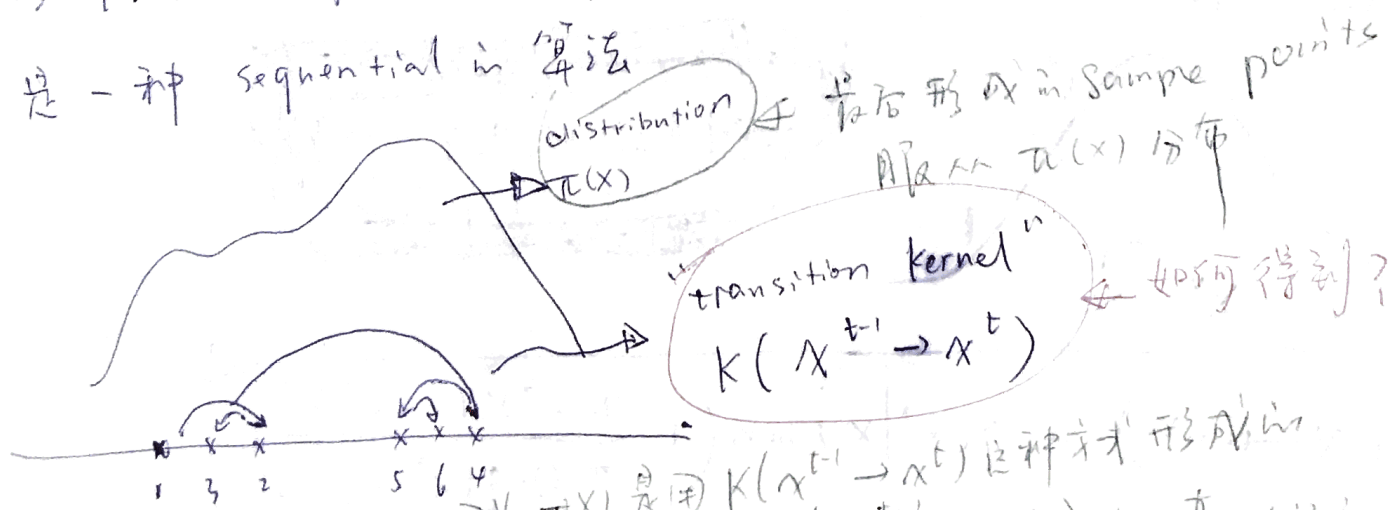 是一种 sequential 的 算法
distribution
π(x)
最后形成的 sample points
服从 π(x) 分布
"transition kernel"
K( x^{t-1} → x^t )
如何得到?
1 3 2 5 6 4
是用 K(x^{t-1} → x^t) 这种方式形成的